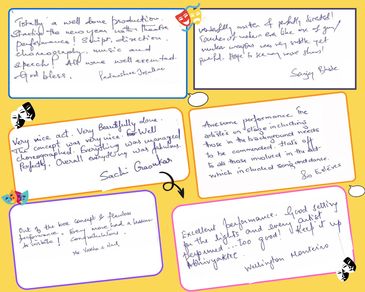 Totally a well done production.
Starting the new year with theatre
performance! Script, direction,
choreography, music and
speech! All were well accounted
God bless.
Wonderfully written & perfectly directed!
was very subtle yet
Hope to see many more shows!
Sanjay
Very nice act. Very Beautifully done.
The concept was very nice. Well
choreographed everything was managed
Perfectly. Overall everything was fabulous.
Sachi Gaonkar
Awesome performance. The
artists on stage including
those in the background needs
to be commended. Hats off
to all those involved in the
which included song and dance.
Out of the box concept & flawless
performance. Every move had a
to imbibe! Congratulations.
Excellent performance. Good setting
for the lights and every artist
performed. Too good! Keep it up
Wellington Monteiro